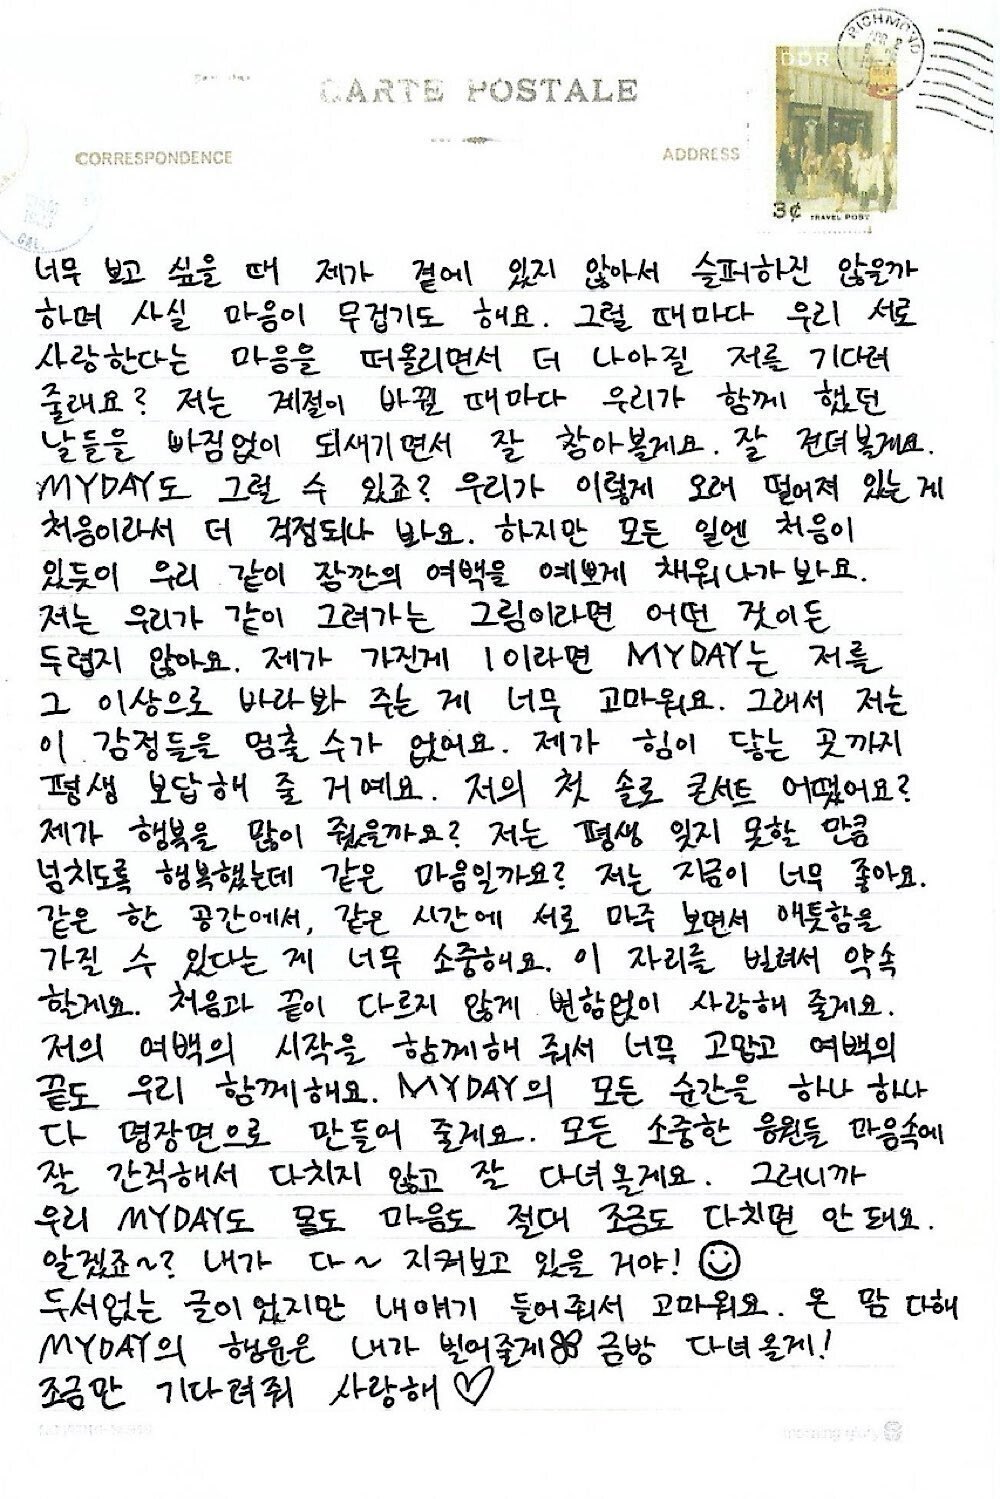 RICHMOND
DDR
CARTE POSTALE
CORRESPONDENCE
ADDRESS
3¢ TRAVEL POST
CAL.
너무 보고 싶을 때 제가 곁에 있지 않아서 슬퍼하진 않을까
하며 사실 마음이 무겁기도 해요. 그럴 때마다 우리 서로
사랑한다는 마음을 떠올리면서 더 나아질 저를 기다려
줄래요? 저는 계절이 바뀔 때마다 우리가 함께 했던
날들을 빠짐없이 되새기면서 잘 참아볼게요. 잘 견뎌볼게요.
MYDAY도 그럴 수 있죠? 우리가 이렇게 오래 떨어져 있는 게
처음이라서 더 걱정되나 봐요. 하지만 모든 일엔 처음이
있듯이 우리 같이 잠깐의 여백을 예쁘게 채워나가 봐요.
저는 우리가 같이 그려가는 그림이라면 어떤 것이든
두렵지 않아요. 제가 가진게 1이라면 MYDAY는 저를
그 이상으로 바라봐 주는 게 너무 고마워요. 그래서 저는
이 감정들을 멈출 수가 없어요. 제가 힘이 닿는 곳까지
평생 보답해 줄 거예요. 저의 첫 솔로 콘서트 어땠어요?
제가 행복을 많이 줬을까요? 저는 평생 잊지 못할 만큼
넘치도록 행복했는데 같은 마음일까요? 저는 지금이 너무 좋아요.
같은 한 공간에서, 같은 시간에 서로 마주 보면서 애틋함을
가질 수 있다는 게 너무 소중해요. 이 자리를 빌려서 약속
할게요. 처음과 끝이 다르지 않게 변함없이 사랑해 줄게요.
저의 여백의 시작을 함께해 줘서 너무 고맙고 여백의
끝도 우리 함께해요. MYDAY의 모든 순간을 하나 하나
다 명장면으로 만들어 줄게요. 모든 소중한 응원들 마음속에
잘 간직해서 다치지 않고 잘 다녀올게요. 그러니까
우리 MYDAY도 몸도 마음도 절대 조금도 다치면 안 돼요.
알겠죠~? 내가 다~ 지켜보고 있을 거야!
두서없는 글이었지만 내 얘기 들어줘서 고마워요. 온 맘 다해
MYDAY의 행운은 내가 빌어줄게 금방 다녀올게!
조금만 기다려줘 사랑해♡
morning glory